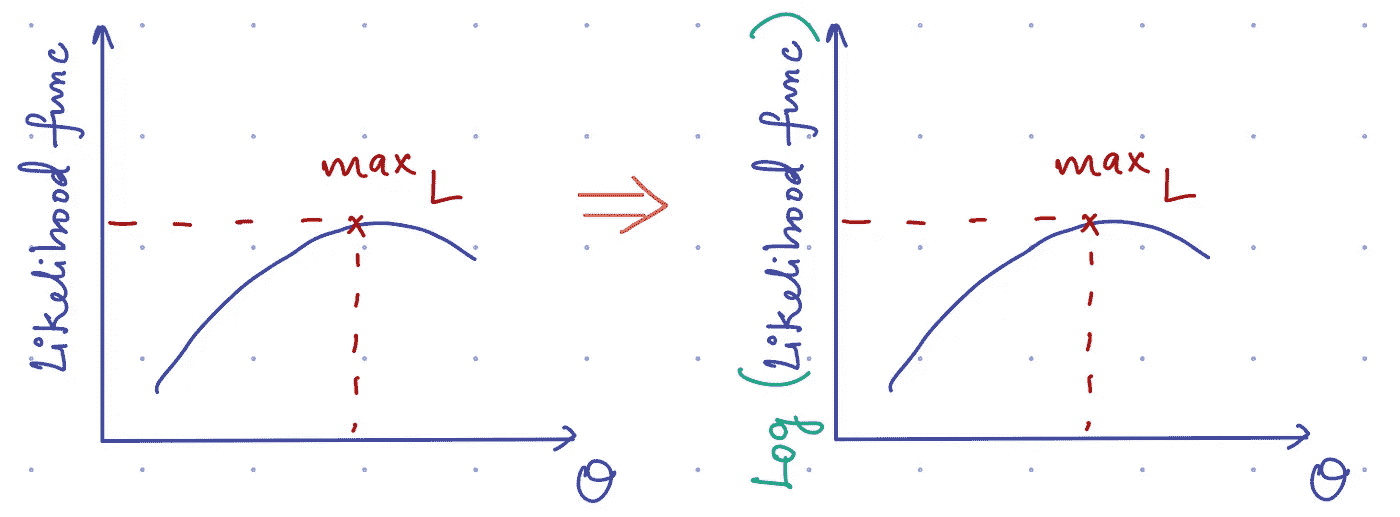 Likelihood func
max L
θ
Log (Likelihood func)
max L
θ